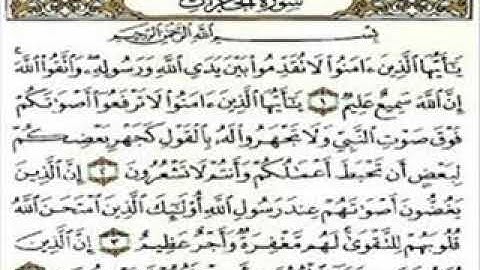 سورة الحجرات
بسم الله الرحمن الرحيم
يَٰٓأَيُّهَا ٱلَّذِينَ ءَامَنُوا۟ لَا تُقَدِّمُوا۟ بَيْنَ يَدَىِ ٱللَّهِ وَرَسُولِهِۦ وَٱتَّقُوا۟ ٱللَّهَ
إِنَّ ٱللَّهَ سَمِيعٌ عَلِيمٌ ١ يَٰٓأَيُّهَا ٱلَّذِينَ ءَامَنُوا۟ لَا تَرْفَعُوٓا۟ أَصْوَٰتَكُمْ
فَوْقَ صَوْتِ ٱلنَّبِىِّ وَلَا تَجْهَرُوا۟ لَهُۥ بِٱلْقَوْلِ كَجَهْرِ بَعْضِكُمْ
لِبَعْضٍ أَن تَحْبَطَ أَعْمَٰلُكُمْ وَأَنتُمْ لَا تَشْعُرُونَ ٢ إِنَّ ٱلَّذِينَ
يَغُضُّونَ أَصْوَٰتَهُمْ عِندَ رَسُولِ ٱللَّهِ أُو۟لَٰٓئِكَ ٱلَّذِينَ ٱمْتَحَنَ ٱللَّهُ
قُلُوبَهُمْ لِلتَّقْوَىٰ لَهُم مَّغْفِرَةٌ وَأَجْرٌ عَظِيمٌ ٣ إِنَّ ٱلَّذِينَ